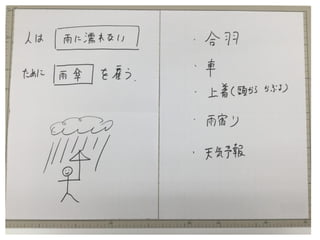 人は 雨に濡れない
ために 雨傘 を雇う.
・合羽
・車
・上着(頭から かぶる)
・雨宿り
・天気予報